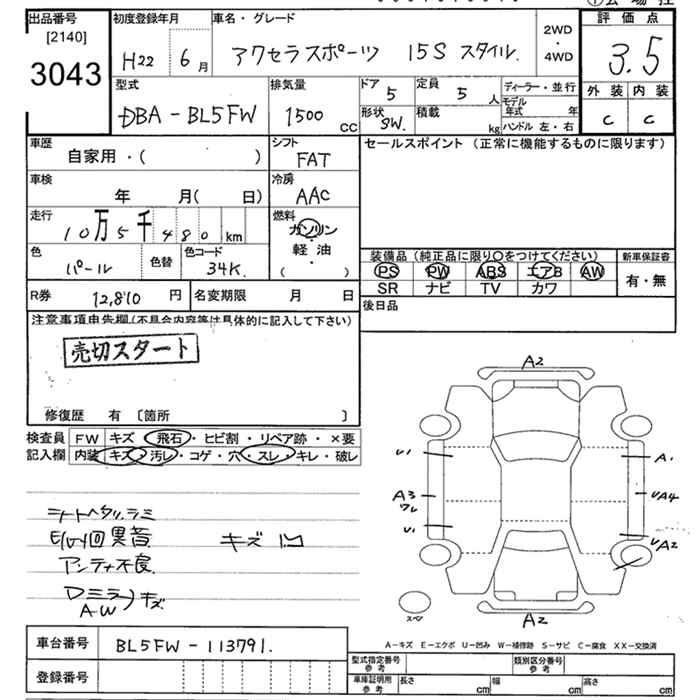 出品番号 初度登録年月 車名・グレード 2WD・4WD 評価点
[2140] 3043 H22 6月 アクセラスポーツ 15S スタイル. 3.5
型式 排気量 ドア 5 定員 5人 ディーラー・並行 外装 内装
DBA-BL5FW 1500cc 形状 SW. 積載 kg モデル年式 年 ハンドル 左・右 C C
車歴 自家用・( ) シフト FAT セールスポイント (正常に機能するものに限ります)
車検 年 月( 日) 冷房 AAC
走行 10万5千480km 燃料 ガソリン・軽油 ( )
色 パール 色替 色コード 34K. 装備品 (純正品に限り○をつけてください) 新車保証書
PS PW ABS エアB AW 有・無
SR ナビ TV カワ
R券 12,810円 名変期限 月 日 後日品
注意事項申告欄(不具合内容等は具体的に記入して下さい)
売切スタート
修復歴 有 〔箇所 〕
検査員 FW キズ 飛石・ヒビ割・リペア跡・×要
記入欄 内装 キズ・汚レ・コゲ・穴・スレ・キレ・破レ
A2
U1 A1
A3 ワレ UA4
U1 UA2
A2
スペア
シートヘタリ.ラミ
黒着 キズ 凹
アンテナ不良
Dミラーキズ
AW
A-キズ E-エクボ U-凹み W-補修跡 S-サビ C-腐食 XX-交換済
車台番号 BL5FW-113791.
登録番号
型式指定番号 参考 類別区分番号 参考
車庫証明用 参考 長さ cm 幅 cm 高さ cm